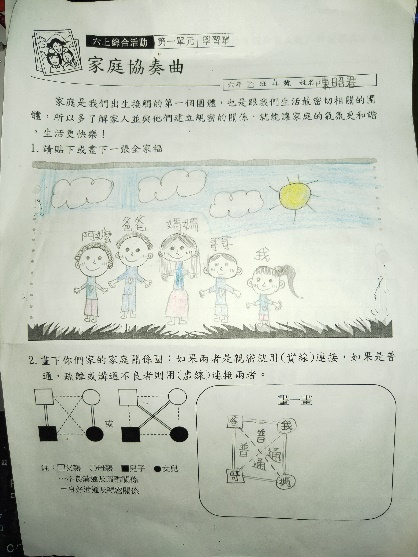 六上綜合活動 第一單元 學習單
家庭協奏曲
六年 班 號 姓名
家庭是我們出生接觸的第一個團體，也是跟我們生活最密切相關的團
體，所以多了解家人並與他們建立親密的關係，就能讓家庭的氣氛更和諧
、生活更快樂！
1. 請貼下或畫下一張全家福
阿嬤 爸爸 媽媽 我
2. 畫下你們家的家庭關係圖：如果兩者是親密就用(實線)連接，如果是普
通，疏離或溝通不良者則用(虛線)連接兩者。
或
畫一畫
爸 我
普 普
通 通
媽
註：□父親 ○母親 ■兒子 ●女兒